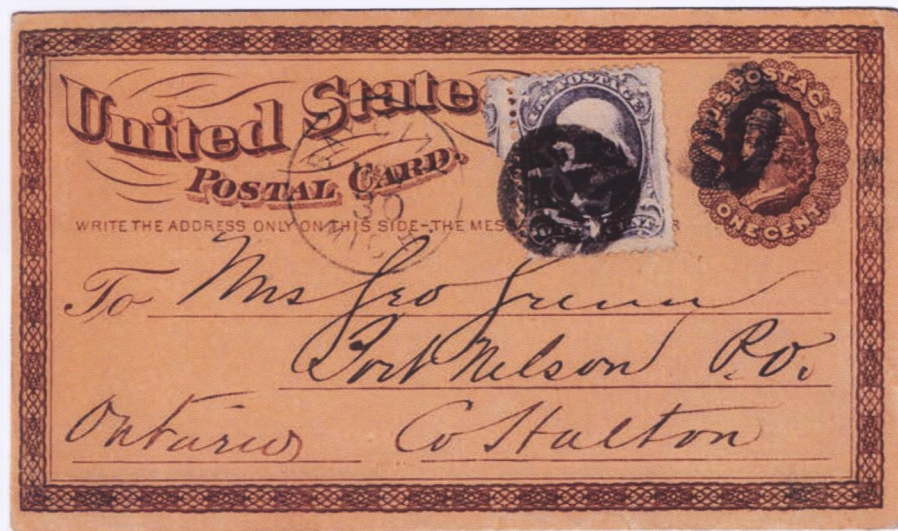 United States
POSTAL CARD.
U.S. POSTAGE
ONE CENT
POSTAGE
30
MICH
WRITE THE ADDRESS ONLY ON THIS SIDE-THE MES
To Mrs Geo Green
Port Nelson P.O.
Ontario Co Halton